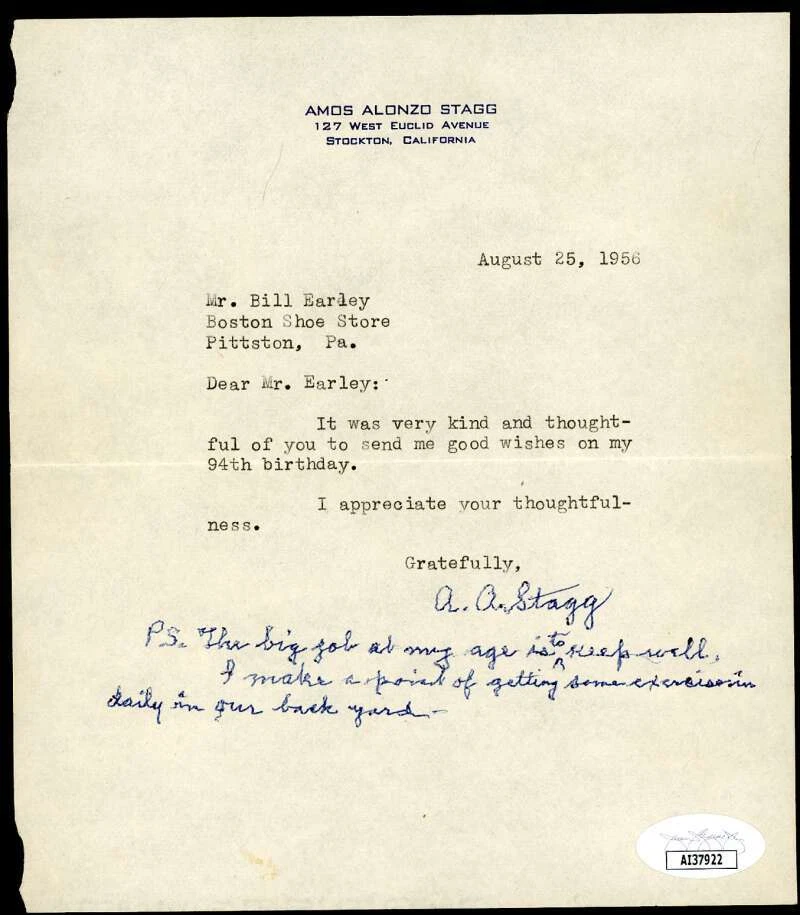 AMOS ALONZO STAGG
127 WEST EUCLID AVENUE
STOCKTON, CALIFORNIA
August 25, 1956
Mr. Bill Earley
Boston Shoe Store
Pittston, Pa.
Dear Mr. Earley:
It was very kind and thought-
ful of you to send me good wishes on my
94th birthday.
I appreciate your thoughtful-
ness.
Gratefully,
A. A. Stagg
P.S. The big job at my age is to keep well.
I make a point of getting some exercise in
daily in our back yard.-
AI37922